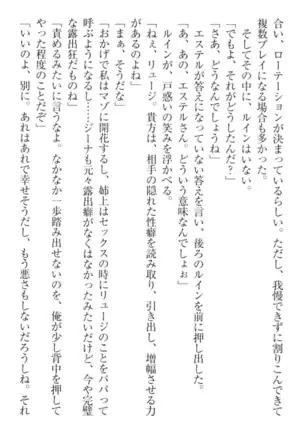 合い、ローテーションが決まっているらしい。ただし、我慢できずに割りこんできて
複数プレイになる場合も多かった。
そしてその中に、ルインはいない。
「でもよ、それがどうしたんだ？」
「さあ、どうなんでしょうね」
エステルが答えになっていない答えを言い、後ろのルインを前に押し出した。
「あ、あの、エステルさん。どういう意味なんでしょぉ」
ルインが、戸惑いの笑みを浮かべる。
「ねぇ、リュージ。貴方は、相手の隠れた性癖を読み取り、引き出し、増幅させる力
があるのよね」
「まぁ、そうだな」
「おかげで私はマゾに開花するし、姉上はセックスの時にリュージのことをパパって
呼ぶようになるし……ジーナも元々露出癖がなくはなかったみたいだけど、今や完璧
な露出狂だものね」
「責めるみたいに言うなよ。なかなか一歩踏み出せないのを、俺が少し背中を押して
やった程度のことだぞ」
「いいのよ、別に。あれはあれで幸せそうだし、もう悪さもしないだろうしね。それ